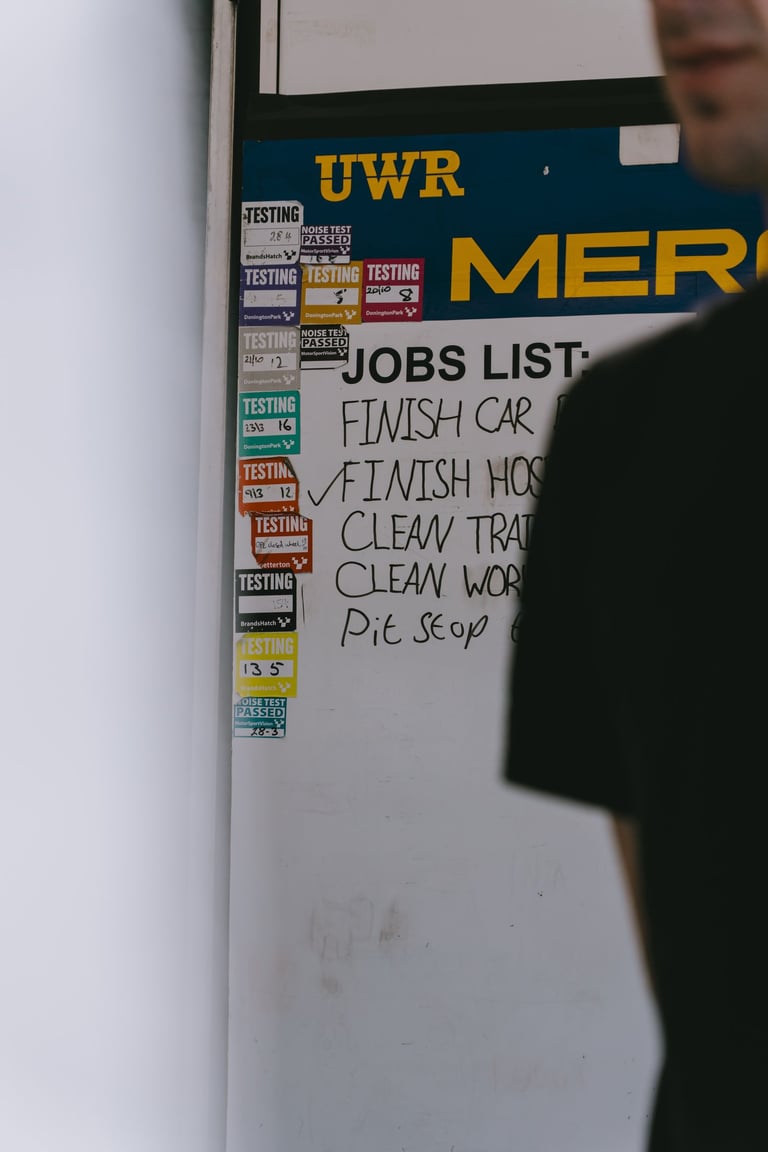 UWR
MER
TESTING
284
BrandsHatch
NOISE TEST
PASSED
MotorSportVision
TESTING
DoningtonPark
TESTING
5
DoningtonPark
TESTING
20/10 8
DoningtonPark
TESTING
21/10 12
DoningtonPark
NOISE TEST
PASSED
MotorSportVision
TESTING
23/3 16
DoningtonPark
TESTING
9/3 12
TESTING
TESTING
BrandsHatch
TESTING
13 5
BrandsHatch
NOISE TEST
PASSED
MotorSportVision
28-3
JOBS LIST:
FINISH CAR
✓FINISH HOS
CLEAN TRAI
CLEAN WOR
Pit Stop